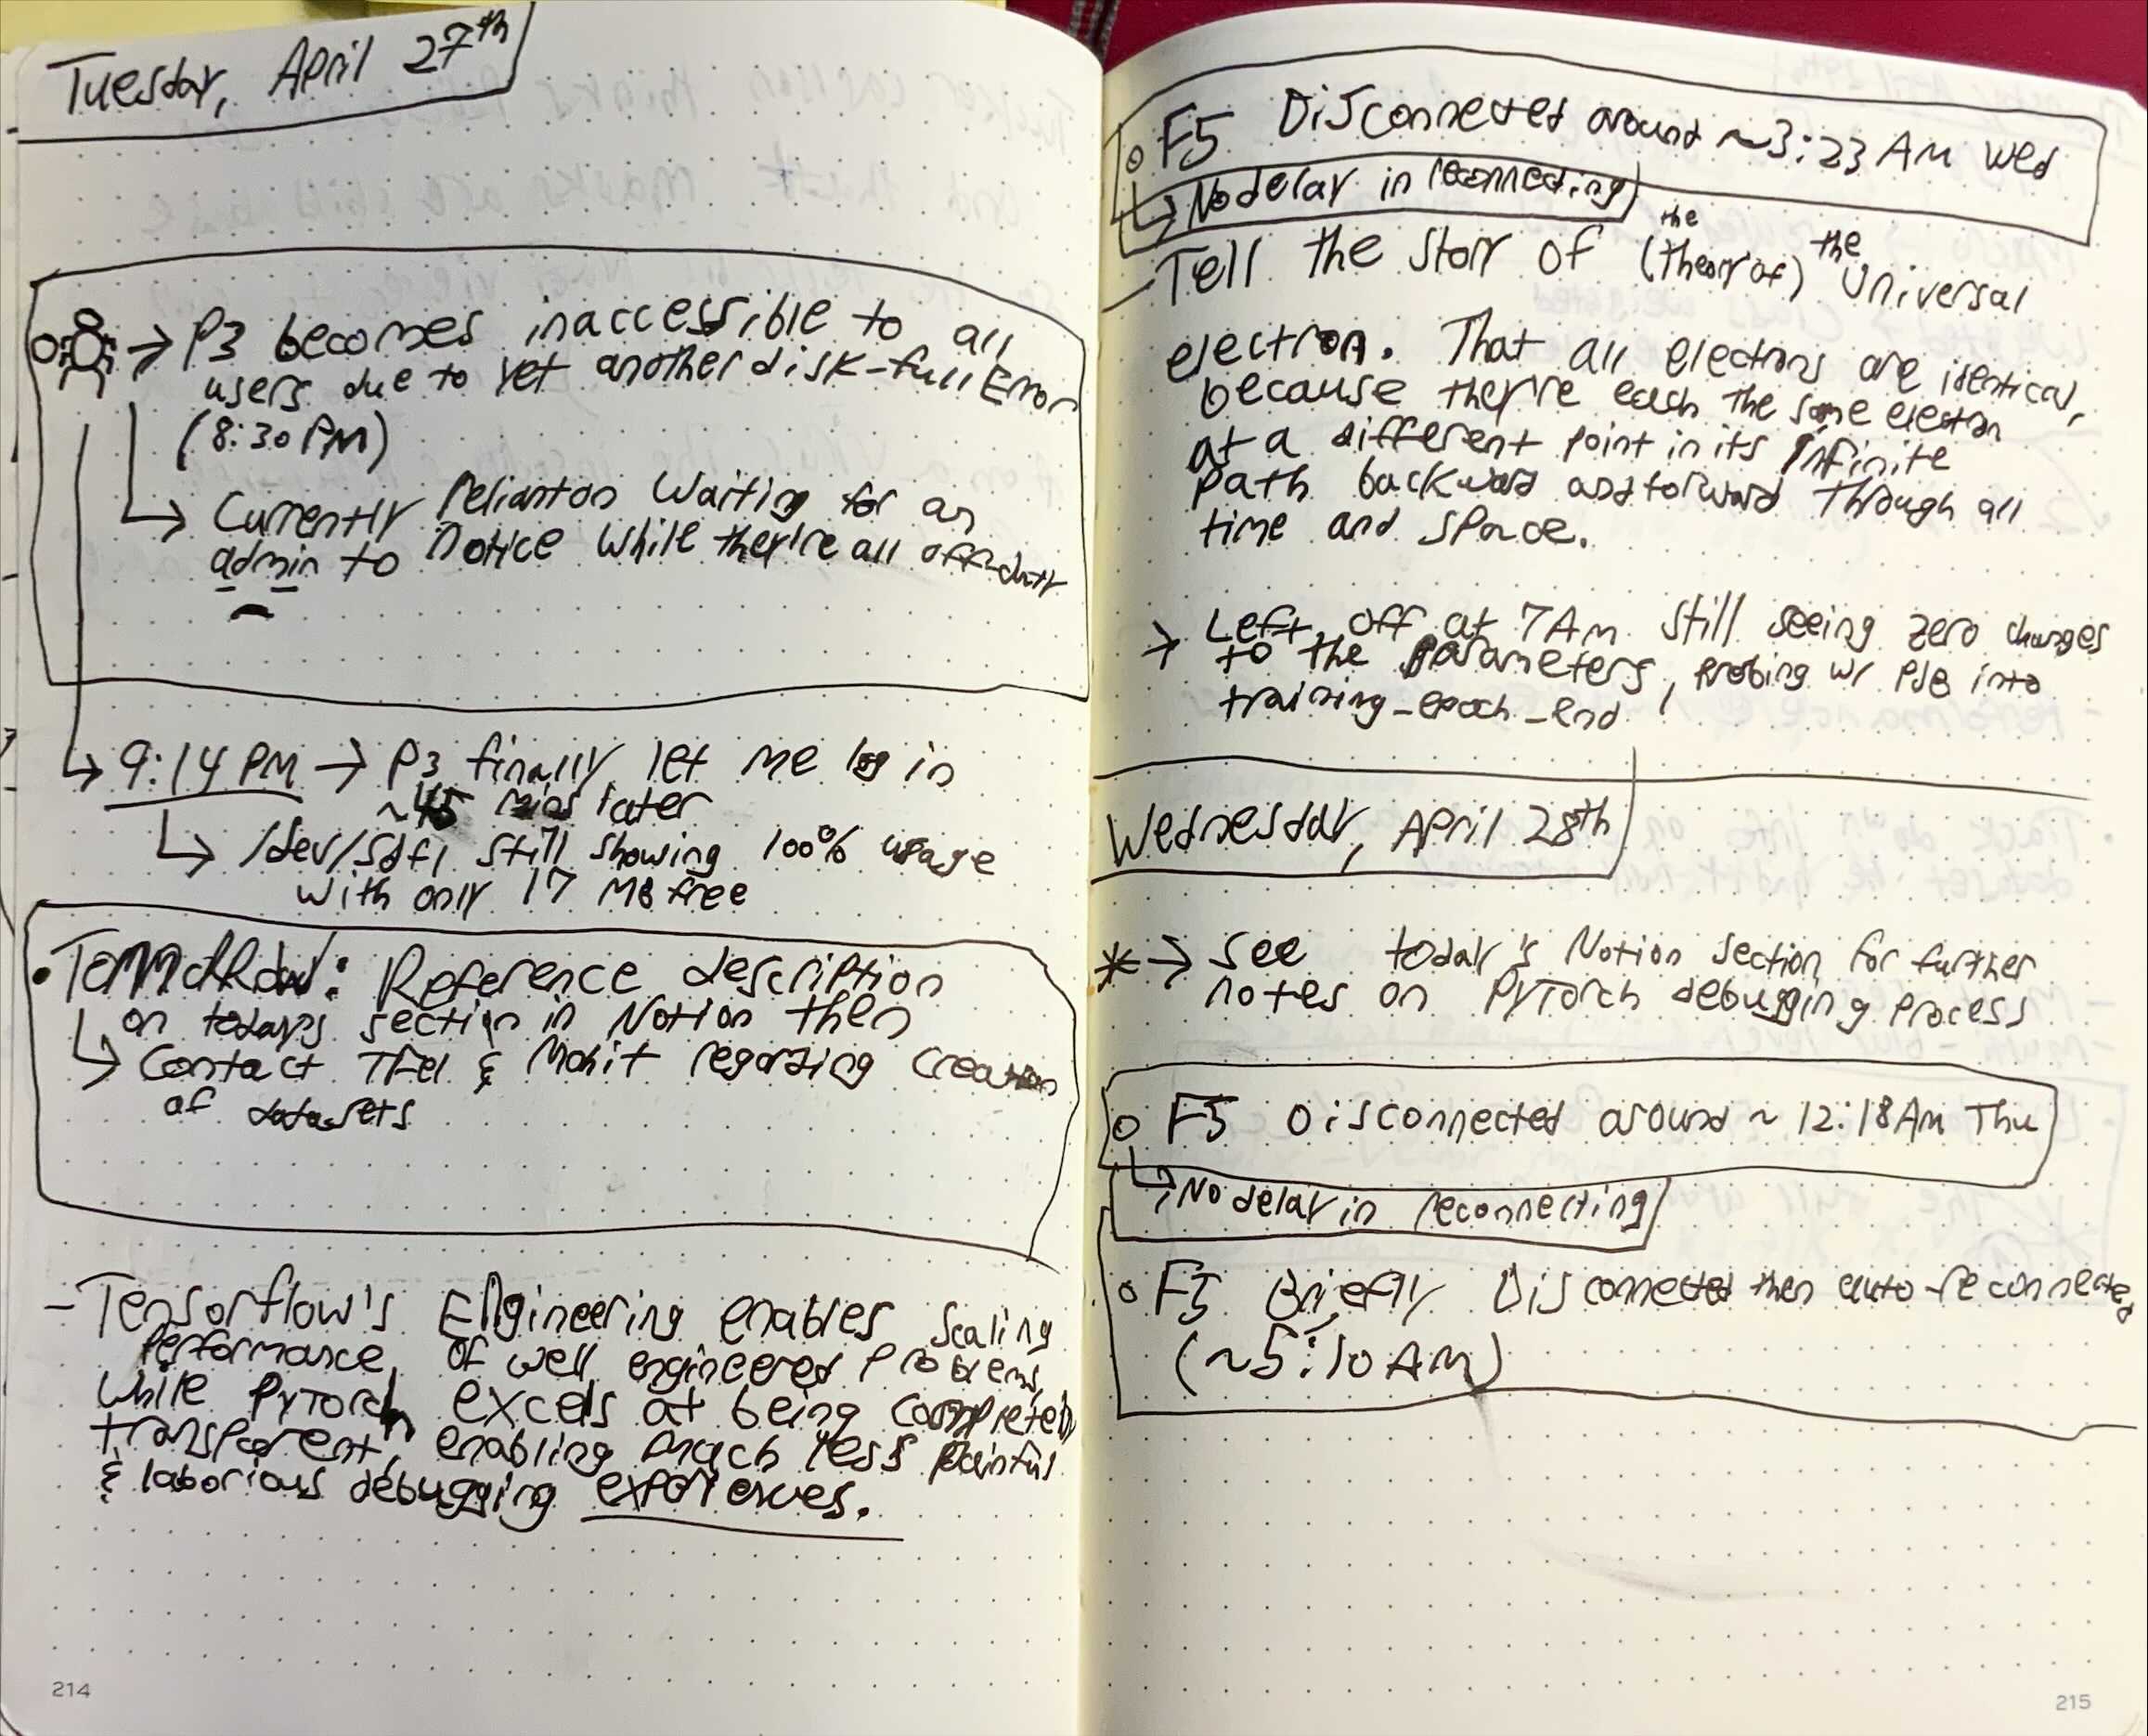 Tuesday, April 27th
→ P3 becomes inaccessible to all
users due to yet another disk-full Error
(8:30 PM)
↳ Currently reliant on waiting for an
admin to notice while they're all off-duty
↳ 9:14 PM → P3 finally let me log in
~45 mins later
↳ /dev/sdf1 still showing 100% usage
with only 17 MB free
• Tomorrow: Reference description
on today's section in Notion then
↳ Contact & Mohit regarding creation
of datasets
- Tensorflow's Engineering enables scaling
performance of well engineered problems,
while PyTorch excels at being completely
transparent, enabling much less painful
& laborious debugging experiences.
214
o F5 Disconnected around ~3:23 AM Wed
↳ No delay in reconnecting
- Tell the story of (the theory of) the Universal
electron. That all electrons are identical,
because they're each the same electron
at a different point in its infinite
path backward and forward through all
time and space.
→ Left off at 7 AM still seeing zero changes
to the parameters, probing w/ PDB into
training_epoch_end!
Wednesday, April 28th
* → See today's Notion section for further
notes on PyTorch debugging process
o F5 Disconnected around ~ 12:18 AM Thu
↳ No delay in reconnecting
o F5 Briefly Disconnected then auto-reconnected
(~5:10 AM)
215